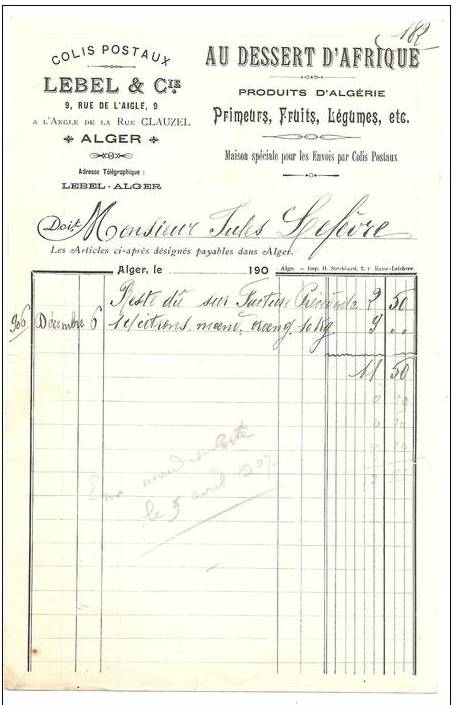 182
COLIS POSTAUX
LEBEL & CIE
9, RUE DE L'AIGLE, 9
A L'ANGLE DE LA RUE CLAUZEL
ALGER
Adresse Télégraphique :
LEBEL-ALGER
AU DESSERT D'AFRIQUE
PRODUITS D'ALGÉRIE
Primeurs, Fruits, Légumes, etc.
Maison spéciale pour les Envois par Colis Postaux
Doit Monsieur Jules Lefèvre
Les Articles ci-après désignés payables dans Alger.
Alger, le 190
Alger - Imp. H.
Reste dû sur Facture Précédente 2 50
906 Décembre 6 mand. orang. 10 Kg 9 "
11 50
le 5 avril 207